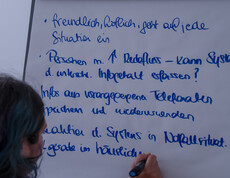 • freundlich, höflich, geht auf jede
Situation ein
• Personen m. ↑ Redefluss – kann System
d. konkrete Infogehalt erfassen?
Infos aus vorangegangenen Telefonaten
speichern und wiederverwenden
Reaktion d. Systems in Notfallsituat.
gerade im häuslich